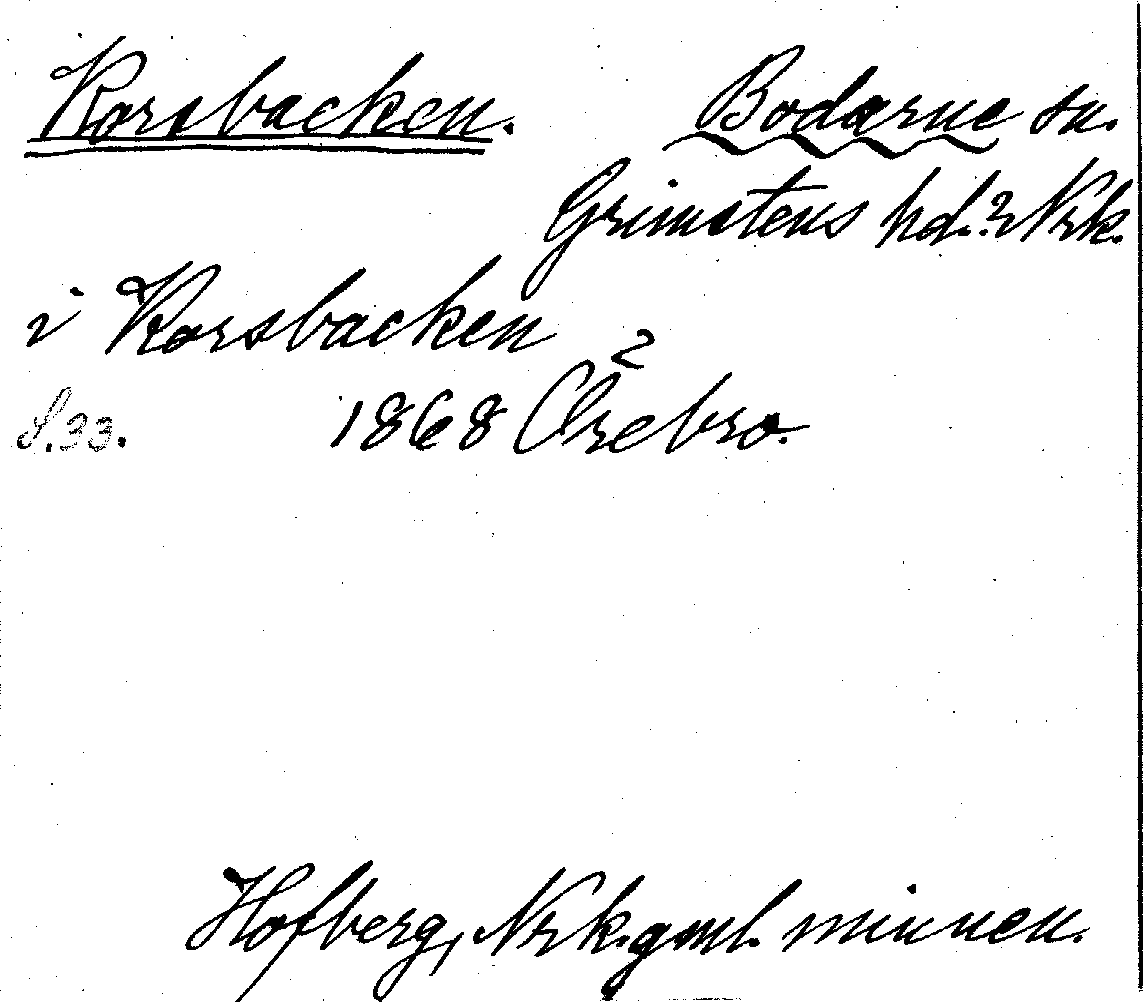 Korsbacken. Bodarne sn.
Grimstens hd.? Nrk.
i Korsbacken
S.33. 1868 Örebro.
Hofberg, Nrk. gml. minnen.